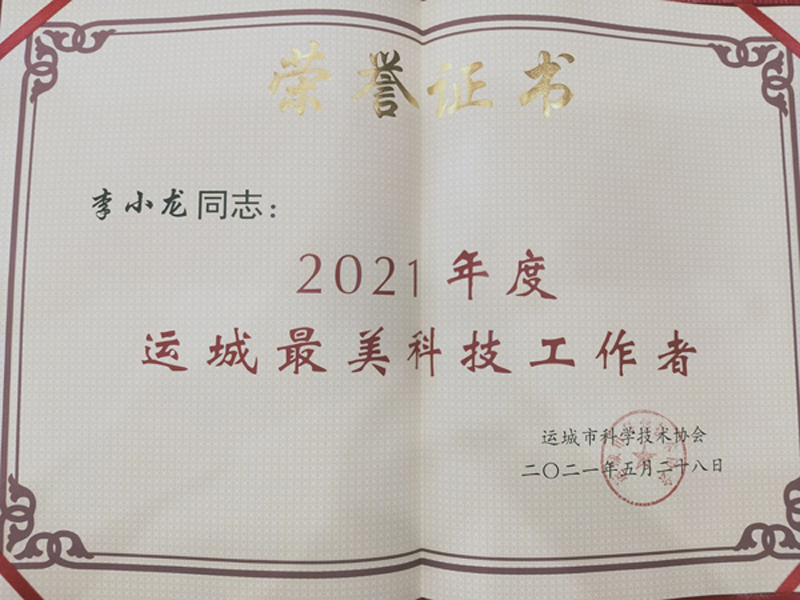 荣誉证书
李小龙同志：
2021年度
运城最美科技工作者
运城市科学技术协会
二〇二一年五月二十八日